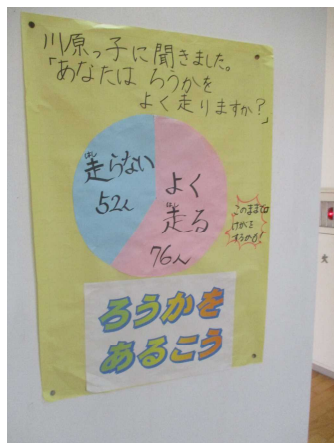 川原っ子に聞きました。
「あなたは ろうかを
よく走りますか？」
走らない
52人
よく
走る
76人
このままでは
けがを
するかも！
ろうかを
あるこう